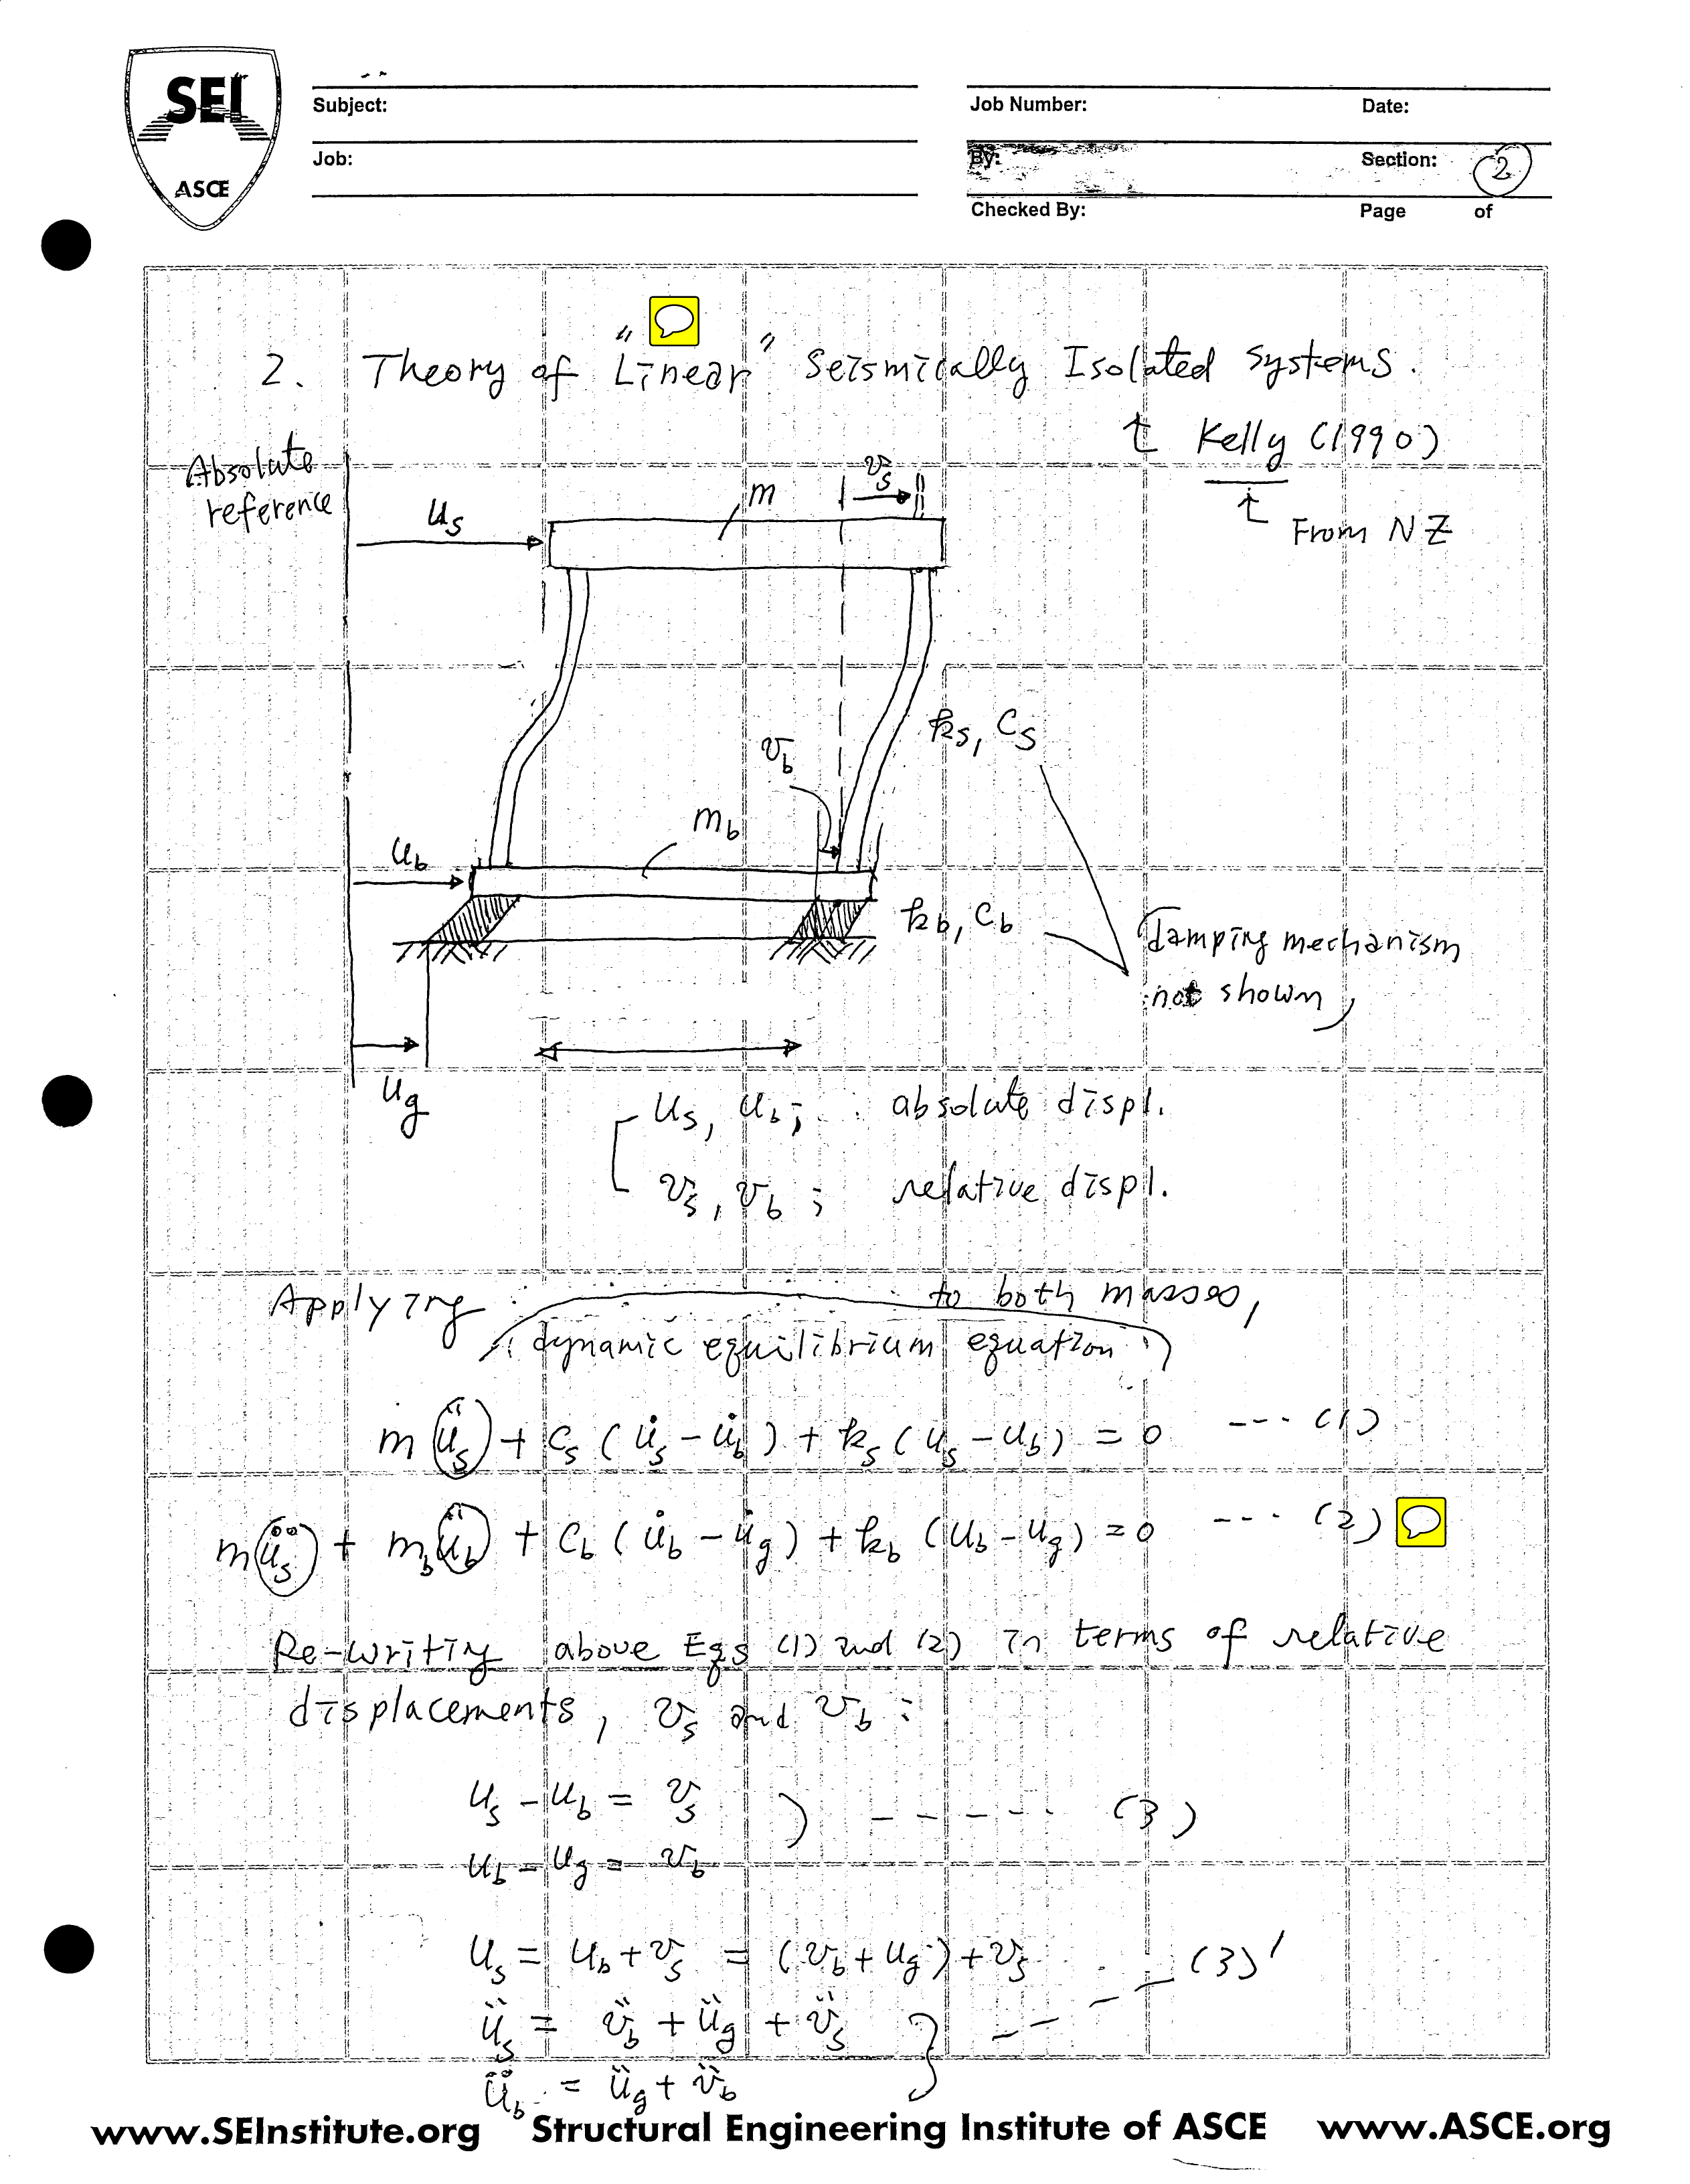 SEI
ASCE
Subject:
Job:
Job Number:
Date:
By:
Section: 2
Checked By:
Page of
2. Theory of "Linear" Seismically Isolated Systems.
↑ Kelly (1990)
↑ From NZ
Absolute
reference
u_s
m
v_s
k_s, c_s
v_b
m_b
u_b
k_b, c_b
(damping mechanism
not shown)
u_g
u_s, u_b ; absolute displ.
v_s, v_b ; relative displ.
Applying to both masses,
dynamic equilibrium equation
m ü_s + c_s ( u̇_s − u̇_b ) + k_s ( u_s − u_b ) = 0 --- (1)
m ü_s + m_b ü_b + c_b ( u̇_b − u̇_g ) + k_b ( u_b − u_g ) = 0 --- (2)
Re-writing above Eqs (1) and (2) in terms of relative
displacements, v_s and v_b :
u_s − u_b = v_s
u_b − u_g = v_b
----- (3)
u_s = u_b + v_s = ( v_b + u_g ) + v_s
ü_s = v̈_b + ü_g + v̈_s
ü_b = ü_g + v̈_b
---- (3)'
www.SEInstitute.org Structural Engineering Institute of ASCE www.ASCE.org